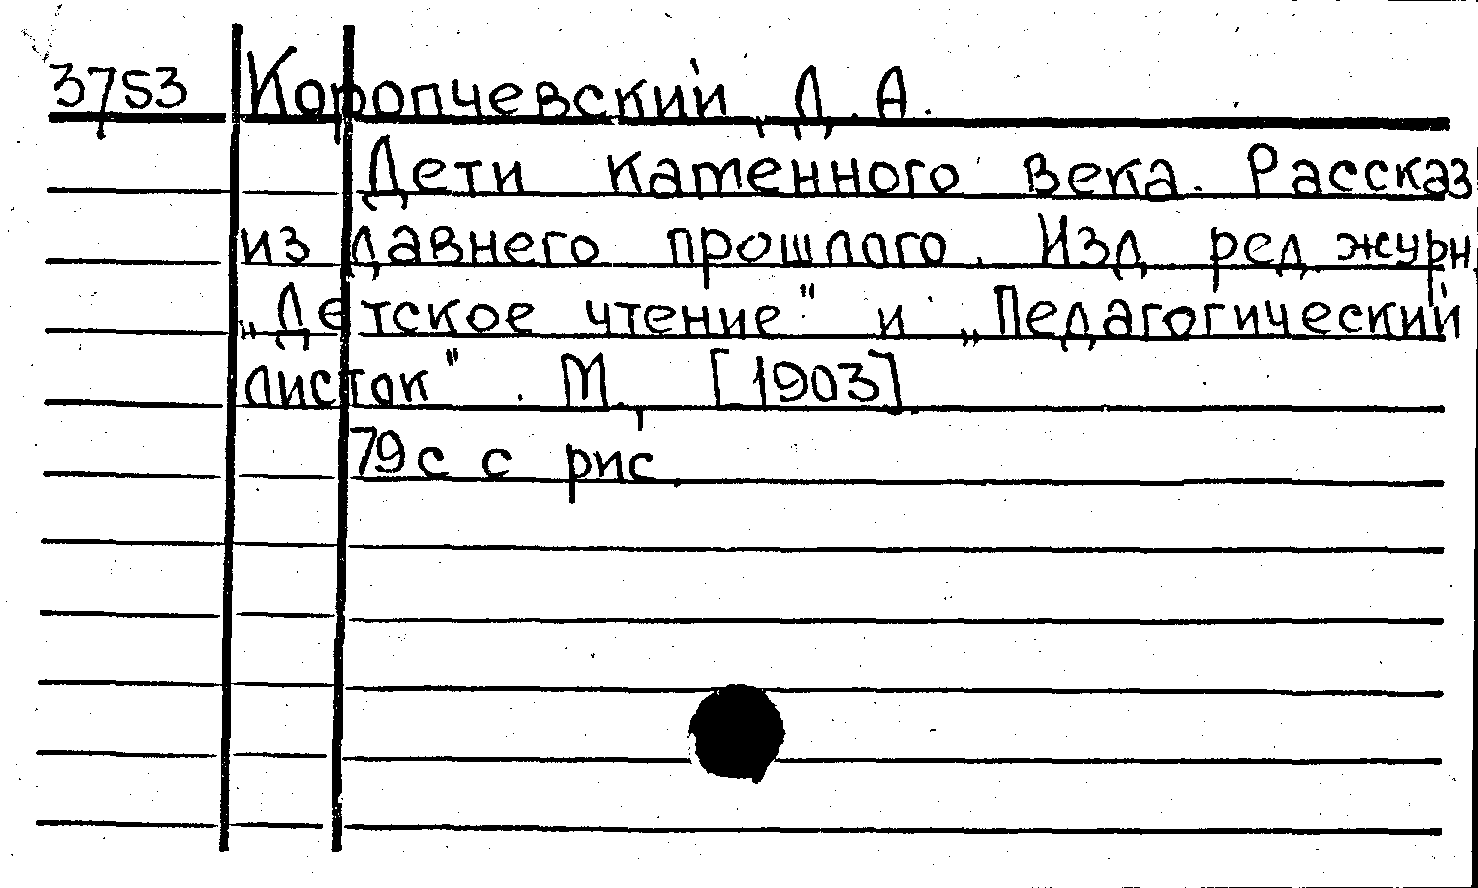 3753 Коропчевский, Д. А.
Дети каменного века. Рассказ
из давнего прошлого. Изд. ред. журн.
„Детское чтение" и „Педагогический
листок". М., [1903].
79 с с рис.